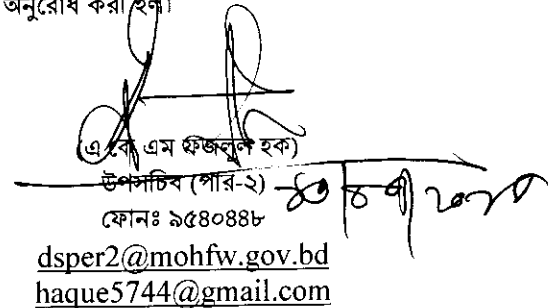 অনুরোধ করা হল।
(এ কে এম ফজলুল হক)
উপসচিব (পার-২)
ফোনঃ ৯৫৪০৪৪৮
dsper2@mohfw.gov.bd
haque5744@gmail.com